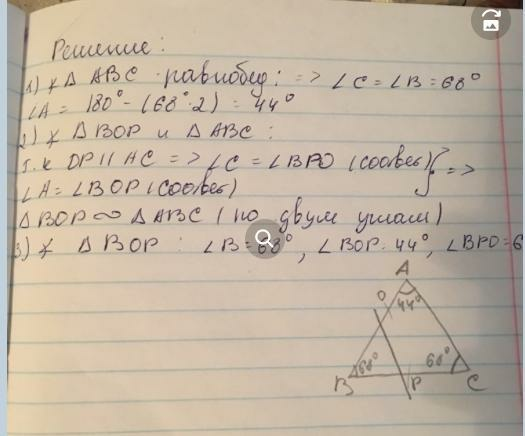 Решение:
1) ∡ Δ ABC равнобед: => ∠C = ∠B = 68°
∠A = 180° - (68°·2) = 44°
2) ∡ Δ BOP и Δ ABC:
т.к OP || AC => ∠C = ∠BPO (соотвев) } =>
∠A = ∠BOP (соотвев)
Δ BOP ∞ Δ ABC (по двум углам)
3) ∡ Δ BOP : ∠B = 68°, ∠BOP = 44°, ∠BPO = 6
A
O
44°
68°
68°
B
P
C